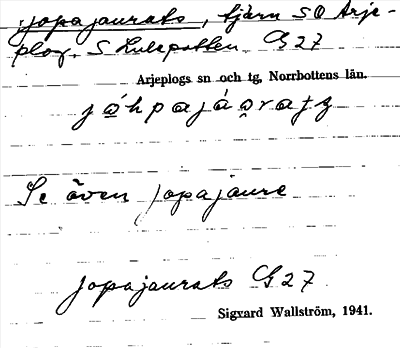 jopajaurats, tjärn SO Arje-
plog. S Lulepotten G 27
Arjeplogs sn och tg, Norrbottens län.
jå̀hpajáa̯raţʒ
Se även jopajaure
jopajaurats G 27
Sigvard Wallström, 1941.